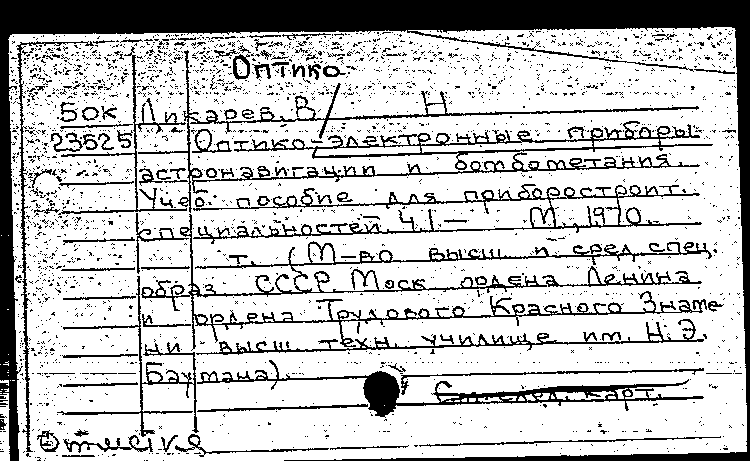 Оптико
БОК Дикарев, В Н
23525 Оптико-электронные приборы
астронавигации и бомбометания.
Учеб. пособие для приборостроит.
специальностей. Ч I.— М., 1970.
т. (М-во высш и сред. спец.
образ СССР. Моск ордена Ленина
и ордена Трудового Красного Знаме
ни высш. техн. училище им. Н. Э.
Баумана).
См. след. карт.
Отметка